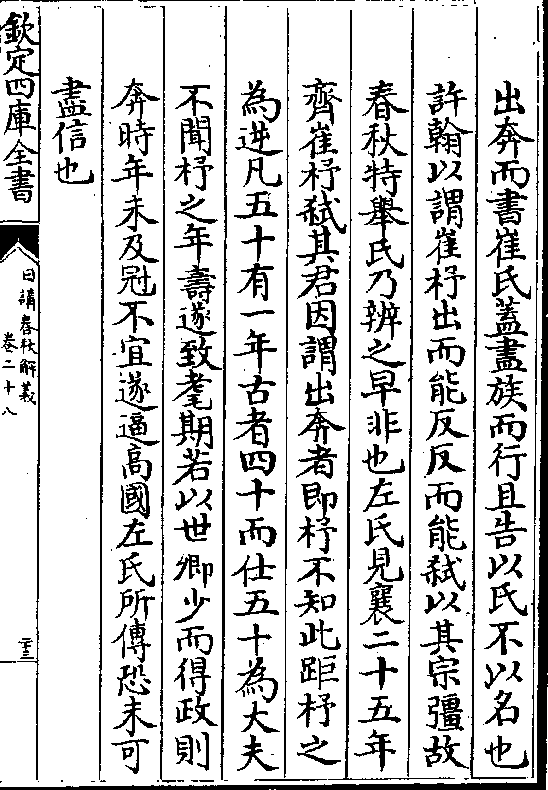 出奔而書崔氏蓋盡族而行且告以氏不以名也
許翰以謂崔杼出而能反反而能弑以其宗彊故
春秋特舉氏乃辨之早非也左氏見襄二十五年
齊崔杼弑其君因謂出奔者即杼不知此距杼之
為逆凡五十有一年古者四十而仕五十為大夫
不聞杼之年壽遂致耄期若以世卿少而得政則
奔時年未及冠不宜遂逼高國左氏所傳恐未可
盡信也
欽定四庫全書
日講春秋解義
卷二十八
二十三